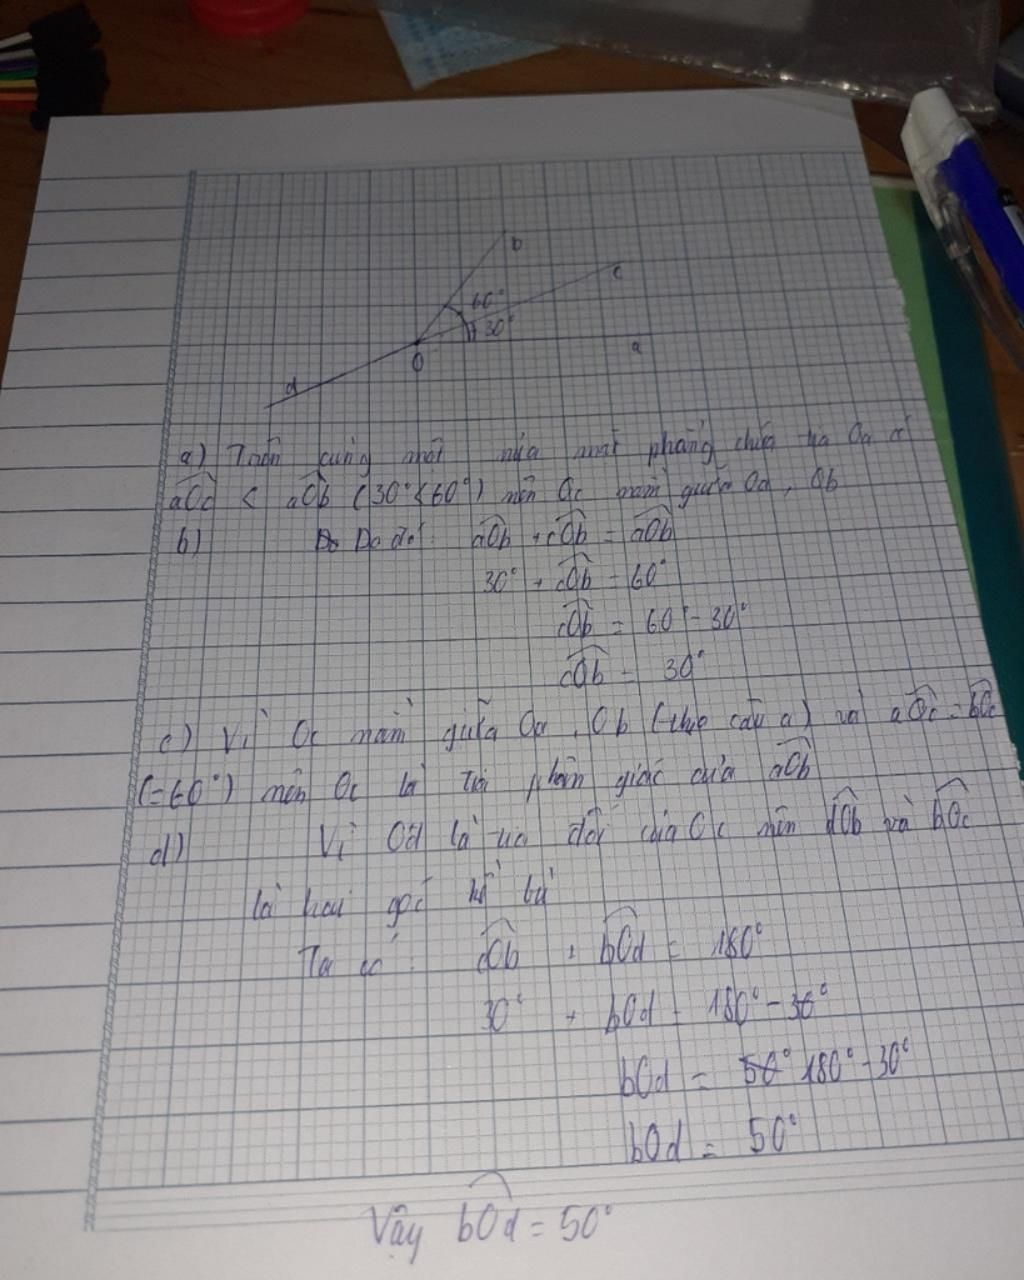 b
c
60°
30°
a
O
d
a) Trên cùng một nửa mặt phẳng chứa tia Oa có
aOc < aOb (30° < 60°) nên Oc nằm giữa Oa, Ob
b) Do đó: aOb + cOb = aOb
30° + cOb = 60°
cOb = 60° - 30°
cOb = 30°
c) Vì Oc nằm giữa Oa, Ob (theo câu a) và aOc = bOc
(=60°) nên Oc là tia phân giác của aOb
d) Vì Od là tia đối của Oc nên dOb và bOc
là hai góc kề bù
Ta có: cOb + bOd = 180°
30° + bOd = 180° - 30°
bOd = 180° - 30°
bOd = 50°
Vậy bOd = 50°